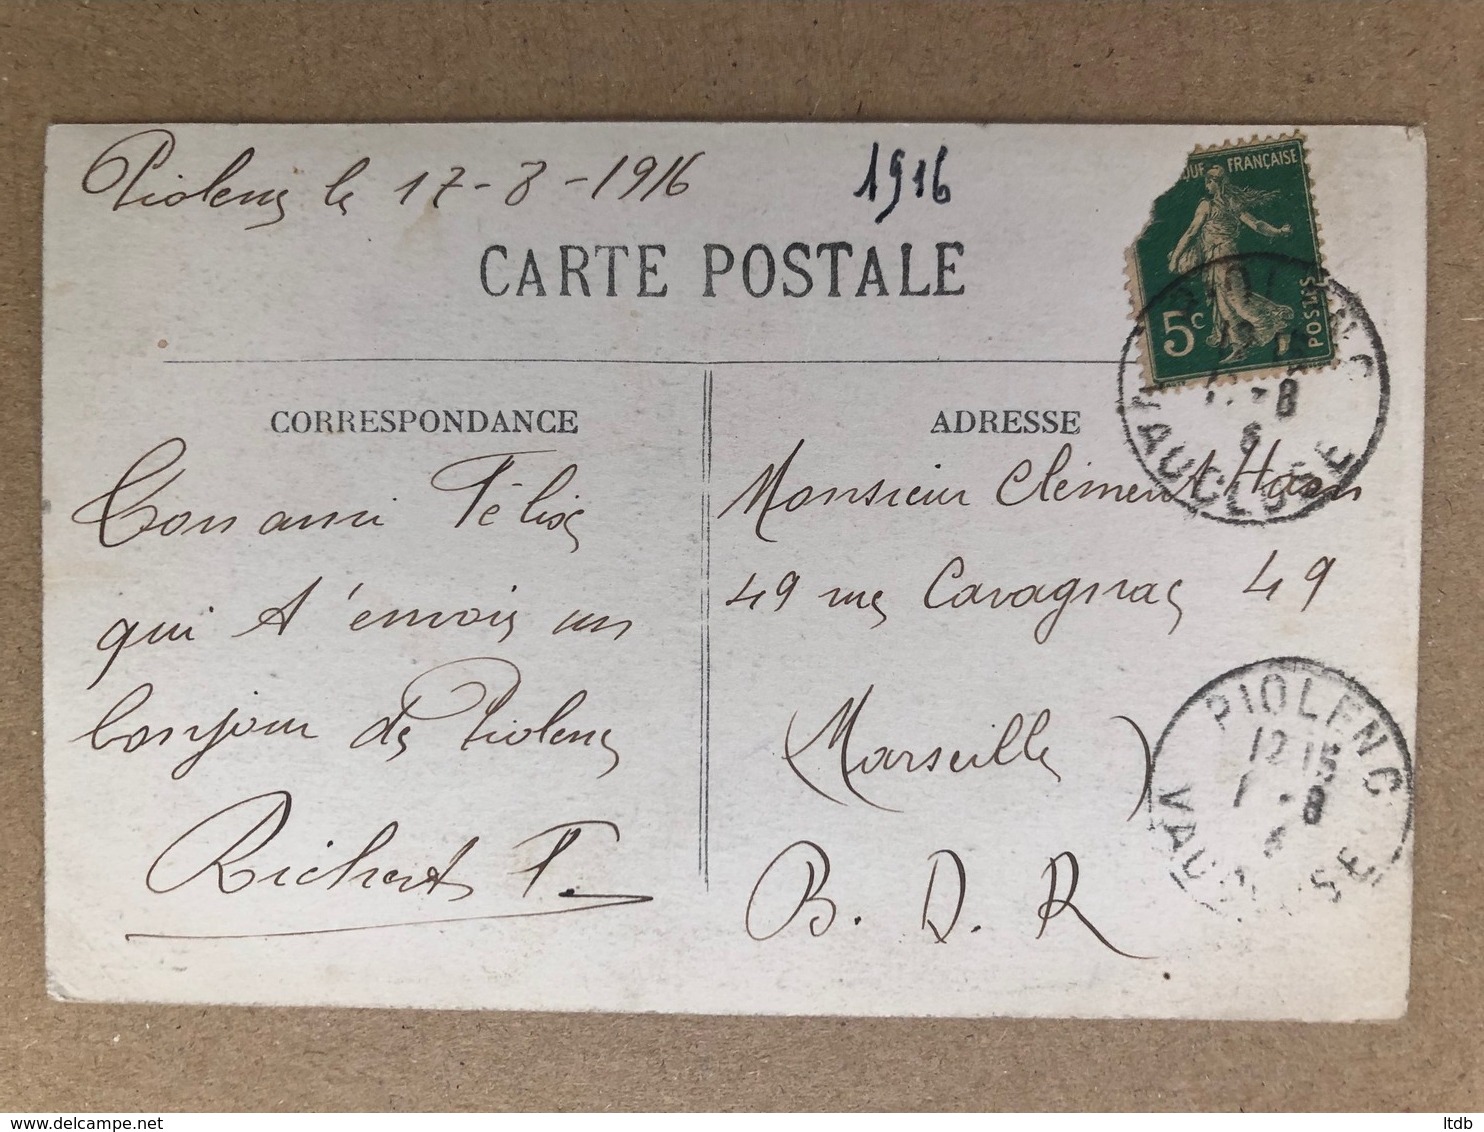 Piolenc le 17-8-1916
1916
QUE FRANÇAISE
5c
POSTES
CARTE POSTALE
PIOLENC
12 15
8
6
VAUCLUSE
CORRESPONDANCE
Ton ami Félix
qui t'envoie un
bonjour de Piolenc
Richert F.
ADRESSE
Monsieur Clément
49 rue Cavagnac 49
(Marseille)
B. D. R
PIOLENC
12 15
1 -8
6
VAUCLUSE
ltdb